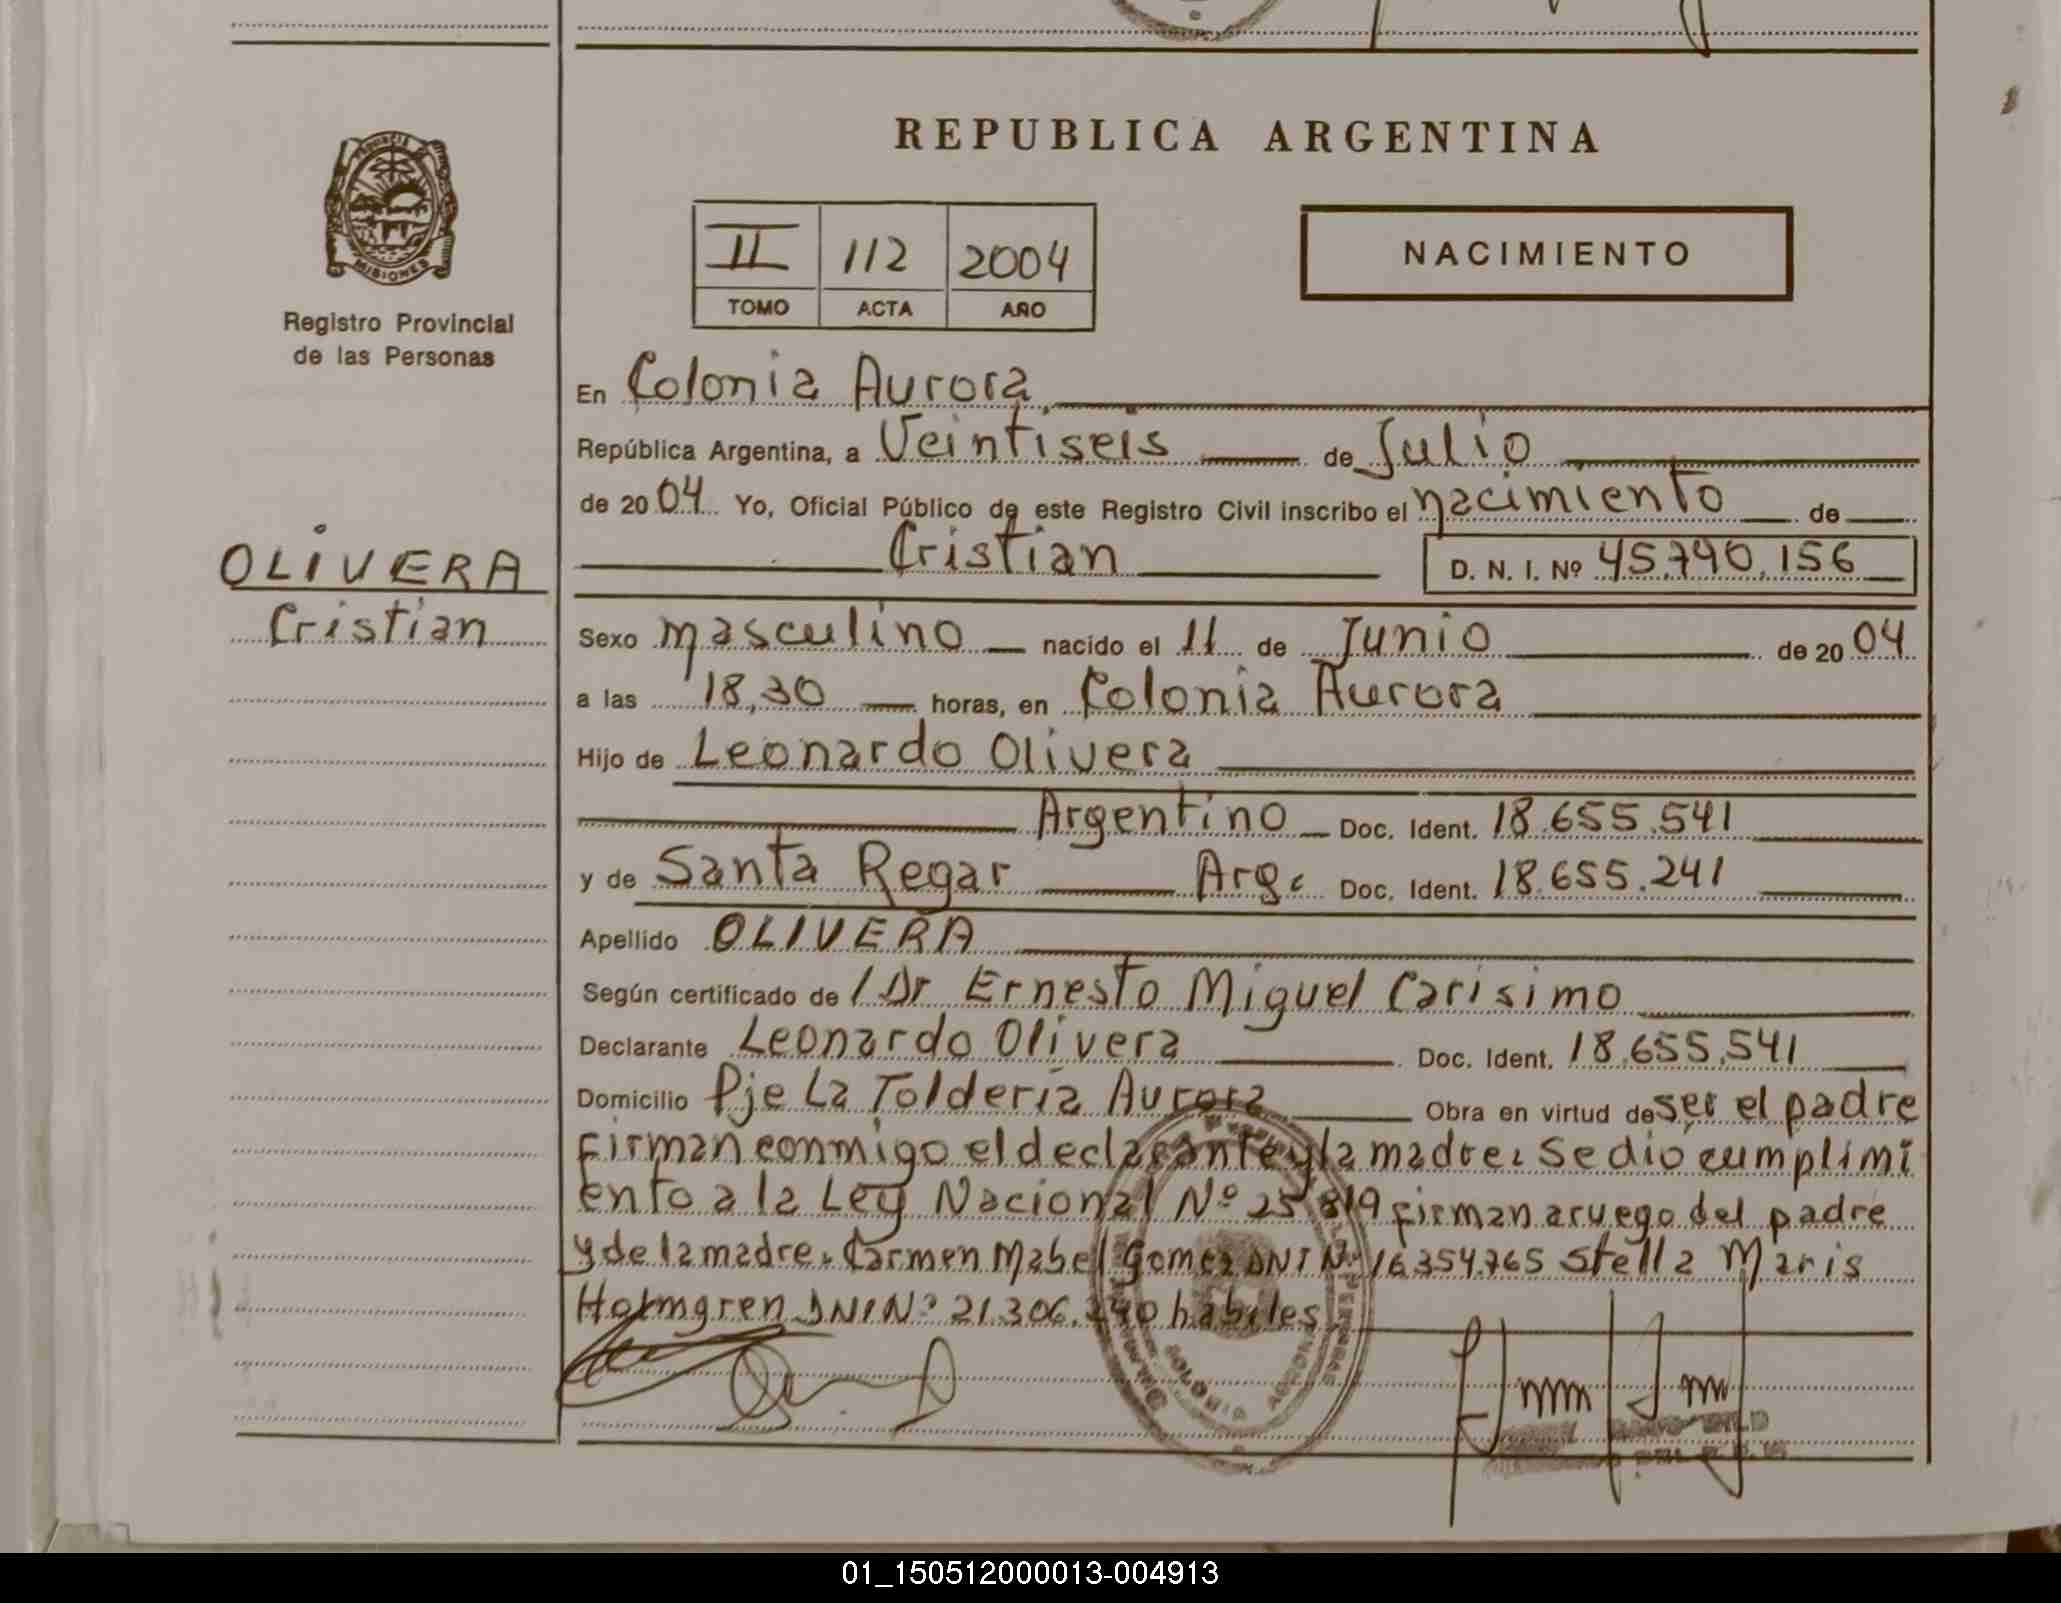 REPUBLICA ARGENTINA
PROVINCIA DE MISIONES
Registro Provincial
de las Personas
II 112 2004
TOMO ACTA AÑO
NACIMIENTO
En Colonia Aurora
República Argentina, a Veintiseis de Julio
de 2004 Yo, Oficial Público de este Registro Civil inscribo el nacimiento de
OLIVERA
Cristian
Cristian D. N. I. Nº 45.740.156
Sexo masculino nacido el 11 de Junio de 2004
a las 18,30 horas, en Colonia Aurora
Hijo de Leonardo Olivera
Argentino Doc. Ident. 18.655.541
y de Santa Regar Arg. Doc. Ident. 18.655.241
Apellido OLIVERA
Según certificado de / Dr Ernesto Miguel Carisimo
Declarante Leonardo Olivera Doc. Ident. 18.655.541
Domicilio Pje La Tolderia Aurora Obra en virtud de ser el padre
firman conmigo el declarante y la madre. Se dió cumplimi
ento a la Ley Nacional Nº 25819 firman a ruego del padre
y de la madre. Carmen Mabel Gomez DNI Nº 16.354.765 Stella Maris
Holmgren DNI Nº 21.306.240 habiles
COLONIA AURORA
01_150512000013-004913